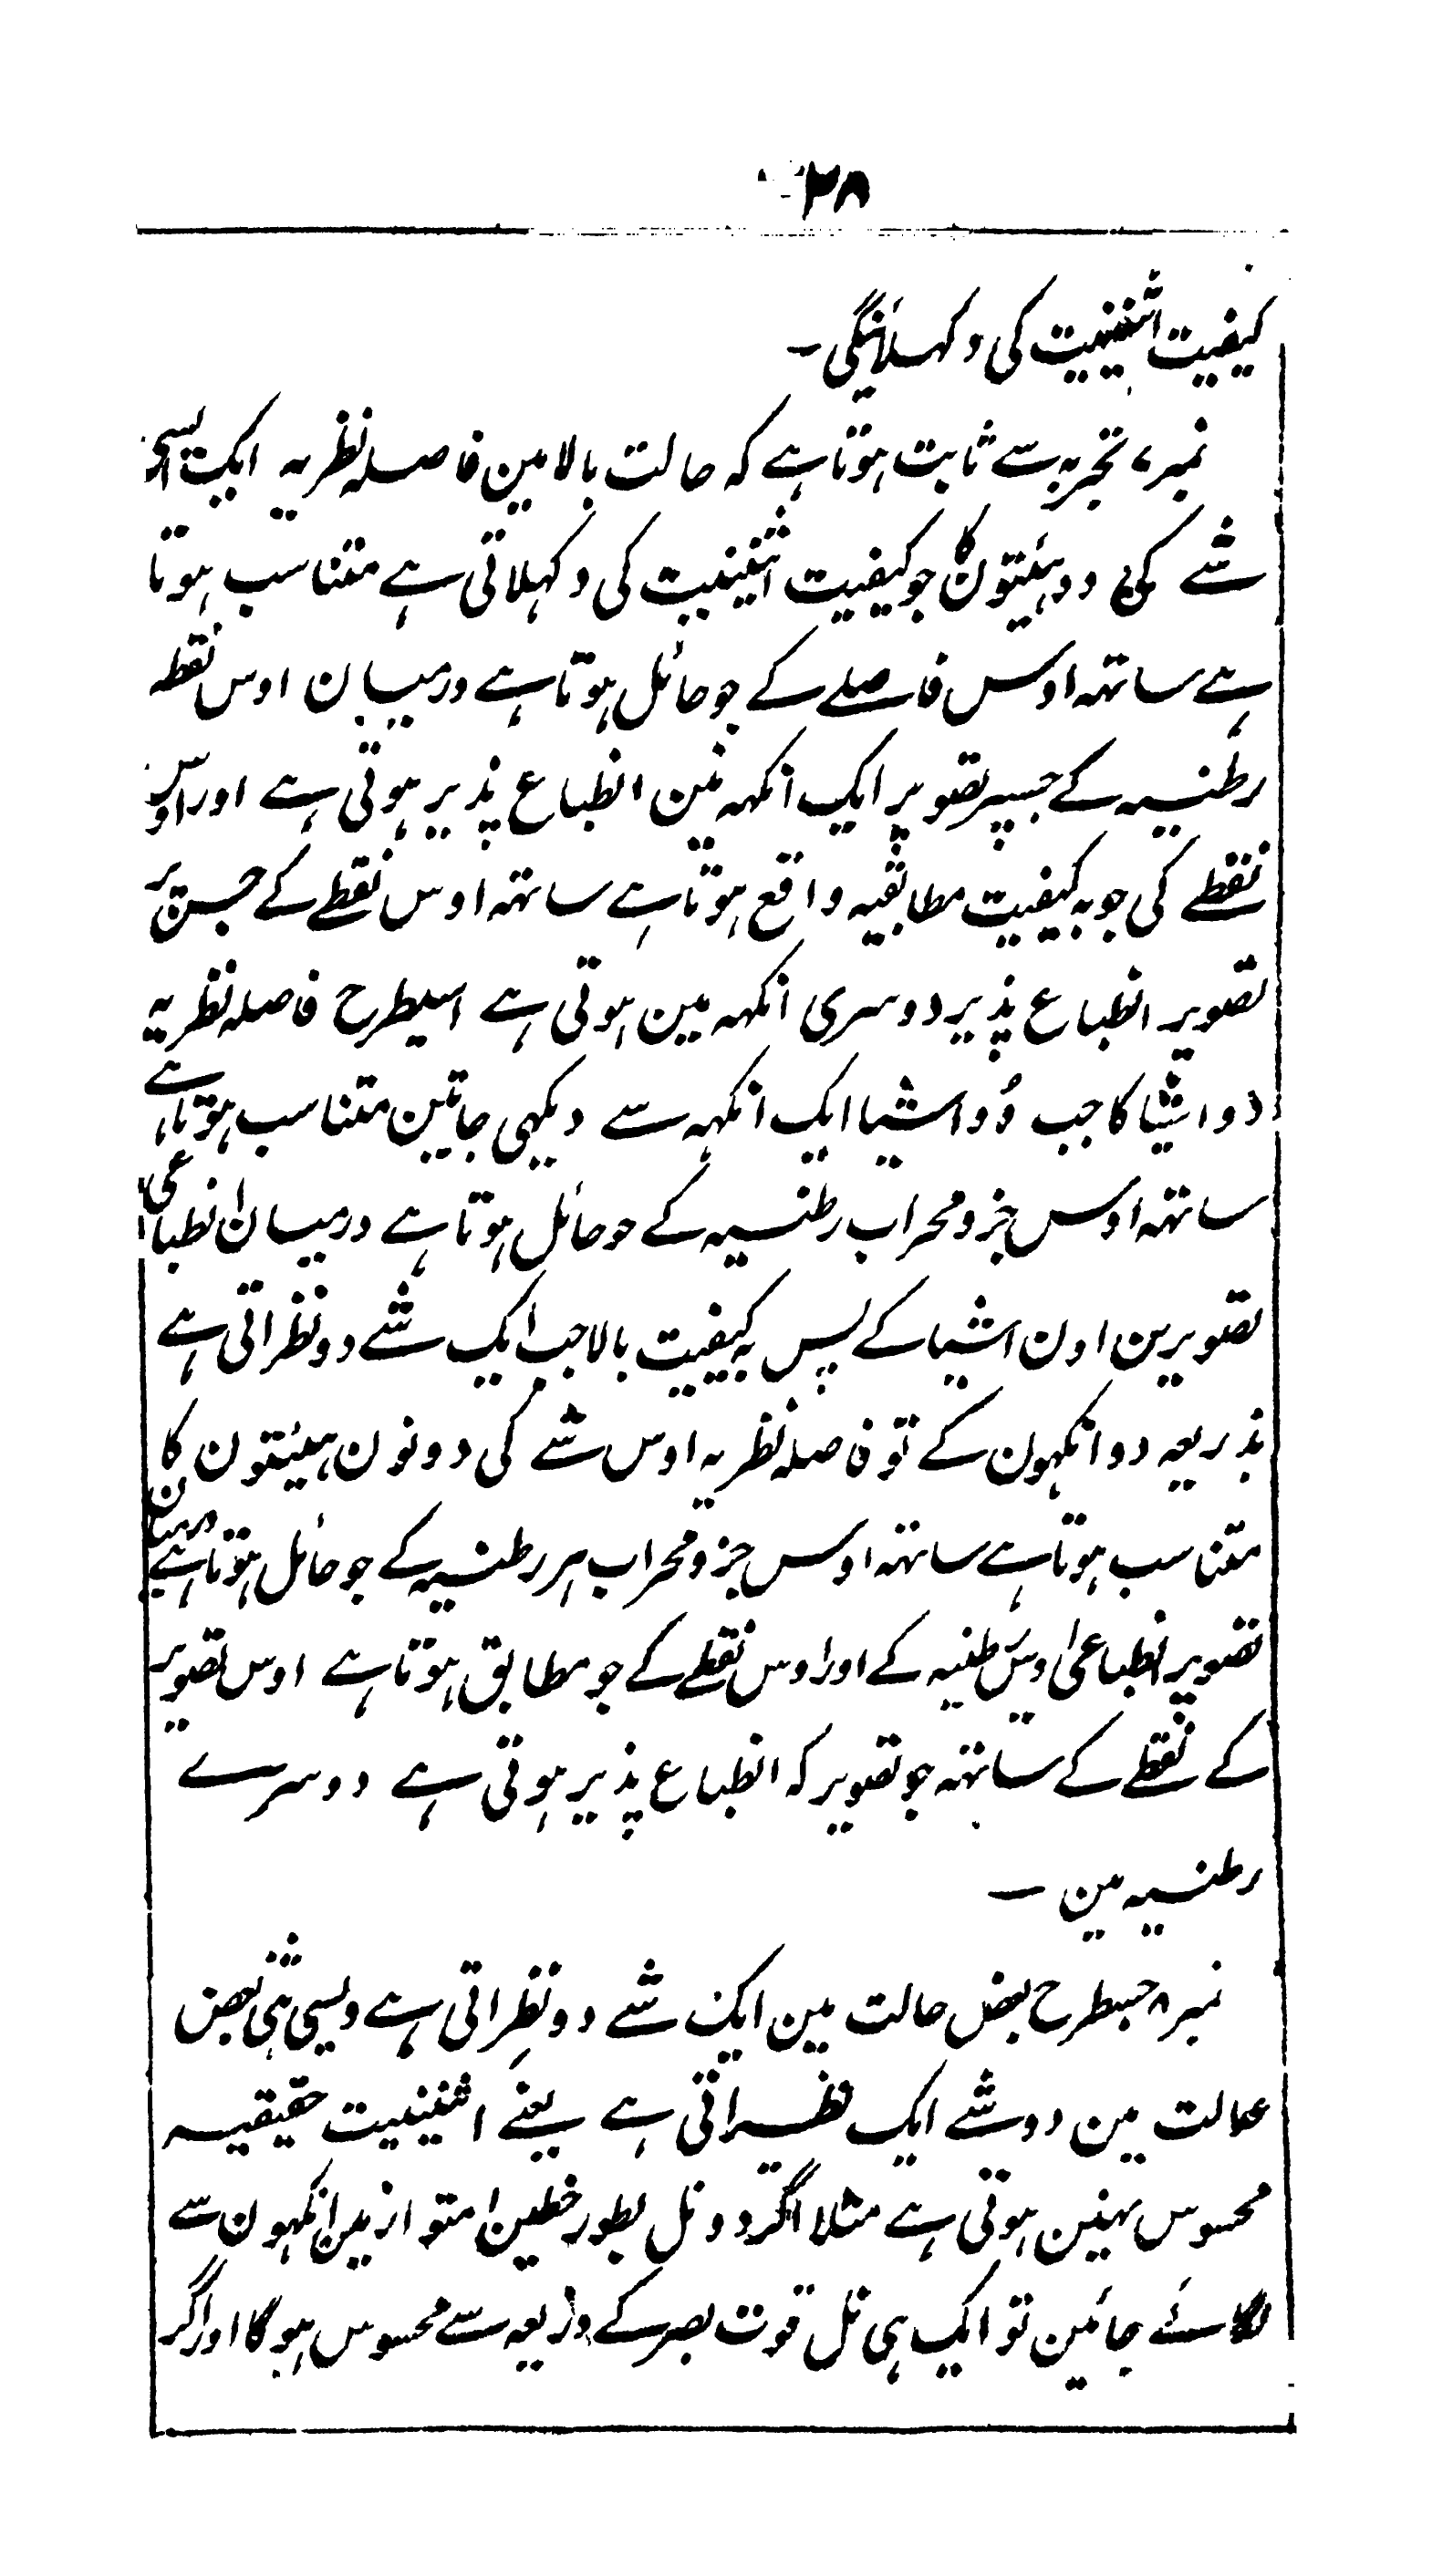 ۲۸
کیفیت اثنینیت کی دکہلائیگی۔
نمبر۷ تجربہ سے ثابت ہوتا ہے کہ حالت بالا مین فاصلہ نظریہ ایک ایسی
شے کی دو ہیئتون کا جو کیفیت اثنینیت کی دکہلاتی ہے متناسب ہوتا
ہے ساتہہ اوس فاصلے کے جو حائل ہوتا ہے درمیان اوس نقطہ
رطنیہ کے جسپر تصویر ایک انکہہ مین انطباع پذیر ہوتی ہے اور اوس
نقطے کی جو بہ کیفیت مطابقیہ واقع ہوتا ہے ساتہہ اوس نقطے کے جس پر
تصویر انطباع پذیر دوسری انکہہ مین ہوتی ہے اسیطرح فاصلہ نظریہ
دو اشیا کا جب وُو اشیا ایک انکہہ سے دیکہی جائین متناسب ہوتا ہے
ساتہہ اوس جزو محراب رطنیہ کے جو حائل ہوتا ہے درمیان انطباعی
تصویرین اون اشیا کے پس بہ کیفیت بالا جب ایک شے دو نظر اتی ہے
بذریعہ دو انکہون کے تو فاصلہ نظریہ اوس شے کی دونون ہیئتون کا
متناسب ہوتا ہے ساتہہ اوس جزو محراب ہر رطنیہ کے جو حائل ہوتا ہے درمیان
تصویر انطباعی اوس رطنیہ کے اور اوس نقطے کے جو مطابق ہوتا ہے اوس تصویر
کے نقطے کے ساتہہ جو تصویر کہ انطباع پذیر ہوتی ہے دوسرے
رطنیہ مین ۔
نمبر۸ جسطرح بعض حالت مین ایک شے دو نظر اتی ہے ویسی ہی بعض
حالت مین دو شے ایک نظر اتی ہے یعنے اثنینیت حقیقیہ
محسوس نہین ہوتی ہے مثلا اگر دو نل بطور خطین متوازئین انکہون سے
لگائے جائین تو ایک ہی نل قوت بصر کے ذریعہ سے محسوس ہوگا اور اگر